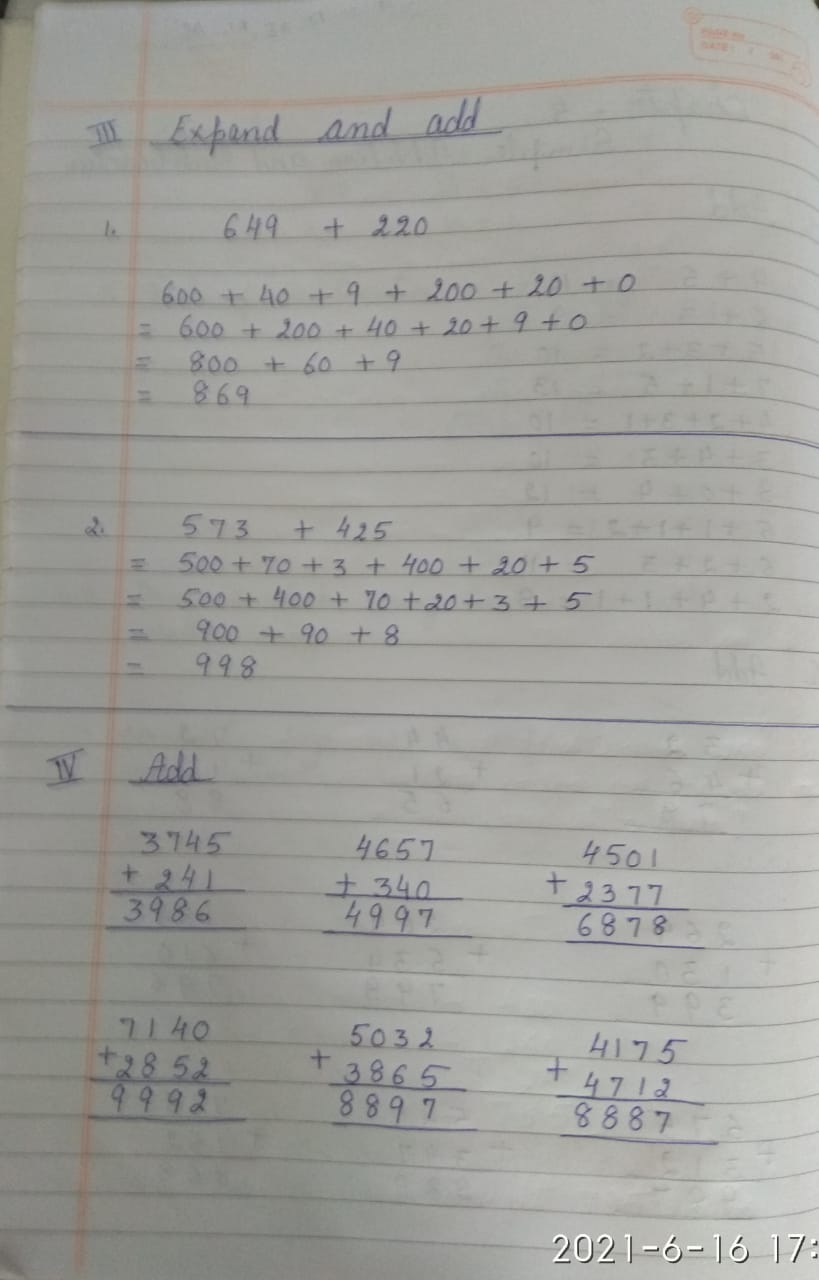 III Expand and add
1. 649 + 220
600 + 40 + 9 + 200 + 20 + 0
= 600 + 200 + 40 + 20 + 9 + 0
= 800 + 60 + 9
= 869
2. 573 + 425
= 500 + 70 + 3 + 400 + 20 + 5
= 500 + 400 + 70 + 20 + 3 + 5
= 900 + 90 + 8
= 998
IV Add
3745 4657 4501
+ 241 + 340 + 2377
3986 4997 6878
7140 5032 4175
+2852 + 3865 + 4712
9992 8897 8887
2021-6-16 17: